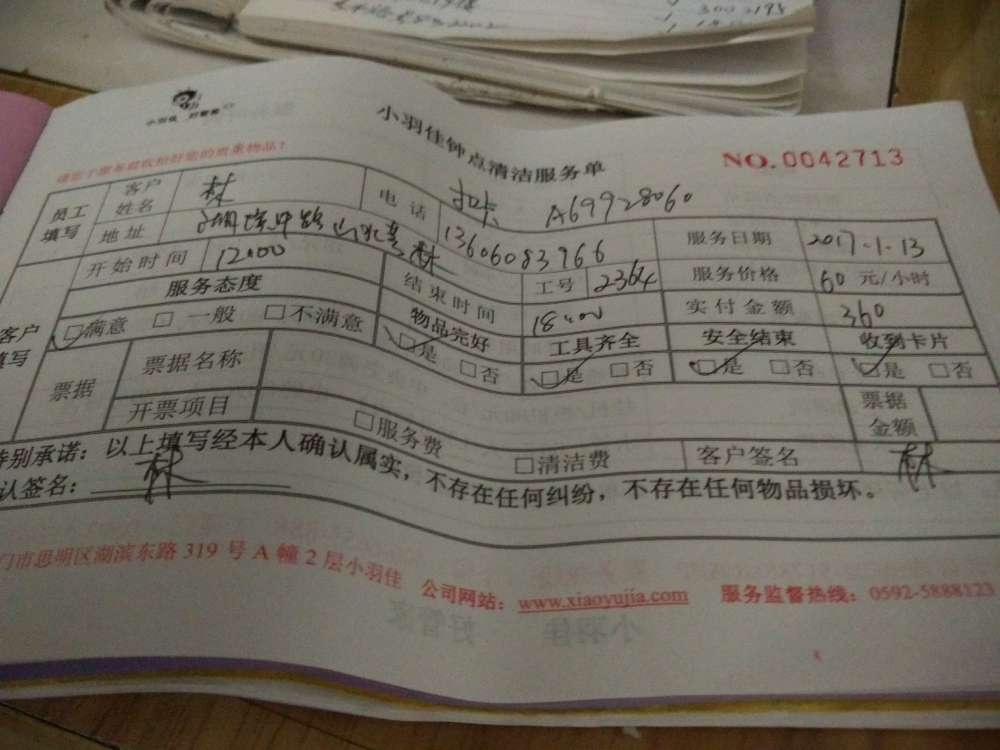 小羽佳 好管家
小羽佳钟点清洁服务单
NO.0042713
请您于服务前收拾好您的贵重物品!
员工填写 客户姓名 林 电话 扣卡 A69928060
地址 山水 林 13606083966 服务日期 2017-1-13
开始时间 12:00 结束时间 18:00 工号 2364 服务价格 60 元/小时
实付金额 360
客户填写 服务态度 物品完好 工具齐全 安全结束 收到卡片
□满意 □一般 □不满意 □是 □否 □是 □否 □是 □否 □是 □否
票据 票据名称 票据金额
开票项目 □服务费 □清洁费 客户签名 林
特别承诺:以上填写经本人确认属实,不存在任何纠纷,不存在任何物品损坏。
认签名: 林
门市思明区湖滨东路 319 号 A 幢 2 层小羽佳 公司网站:www.xiaoyujia.com 服务监督热线:0592-5888123